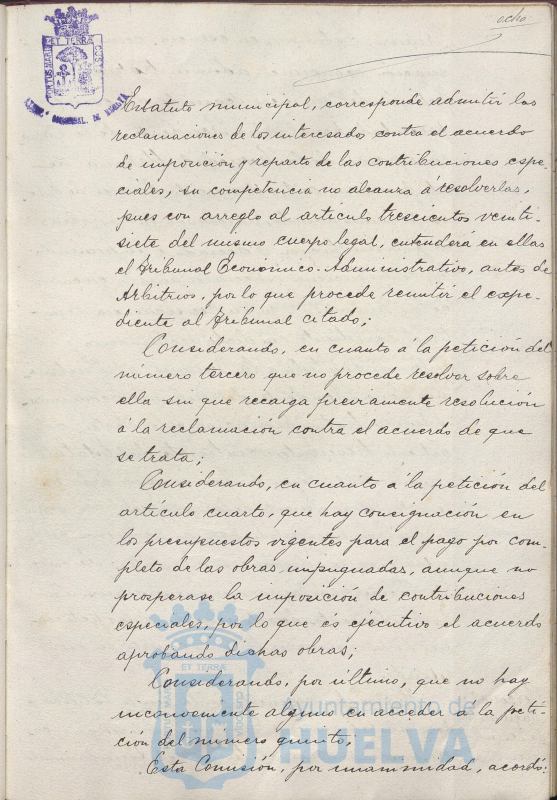 ocho
PORTUS MARIS ET TERRÆ CUSTODIA
ARCHIVO MUNICIPAL. DE HUELVA
Estatuto municipal, corresponde admitir las
reclamaciones de los interesados contra el acuerdo
de imposición y reparto de las contribuciones espe-
ciales, su competencia no alcanza á resolverlas,
pues con arreglo al artículo trescientos veinti-
siete del mismo cuerpo legal, entenderá en ellas
el Tribunal Económico-Administrativo, antes de
Arbitrios, por lo que procede remitir el expe-
diente al Tribunal citado;
Considerando, en cuanto á la petición del
número tercero que no procede resolver sobre
ella sin que recaiga previamente resolución
á la reclamación contra el acuerdo de que
se trata;
Considerando, en cuanto á la petición del
artículo cuarto, que hay concignación en
los presupuestos vigentes para el pago por com-
pleto de las obras impugnadas, aunque no
prosperase la imposición de contribuciones
especiales, por lo que és ejecutivo el acuerdo
aprobando dichas obras;
Considerando, por último, que no hay
inconveniente alguno en acceder á la peti-
ción del número quinto;
Esta Comisión, por unanimidad, acordó:
ET TERRÆ
Ayuntamiento de
HUELVA